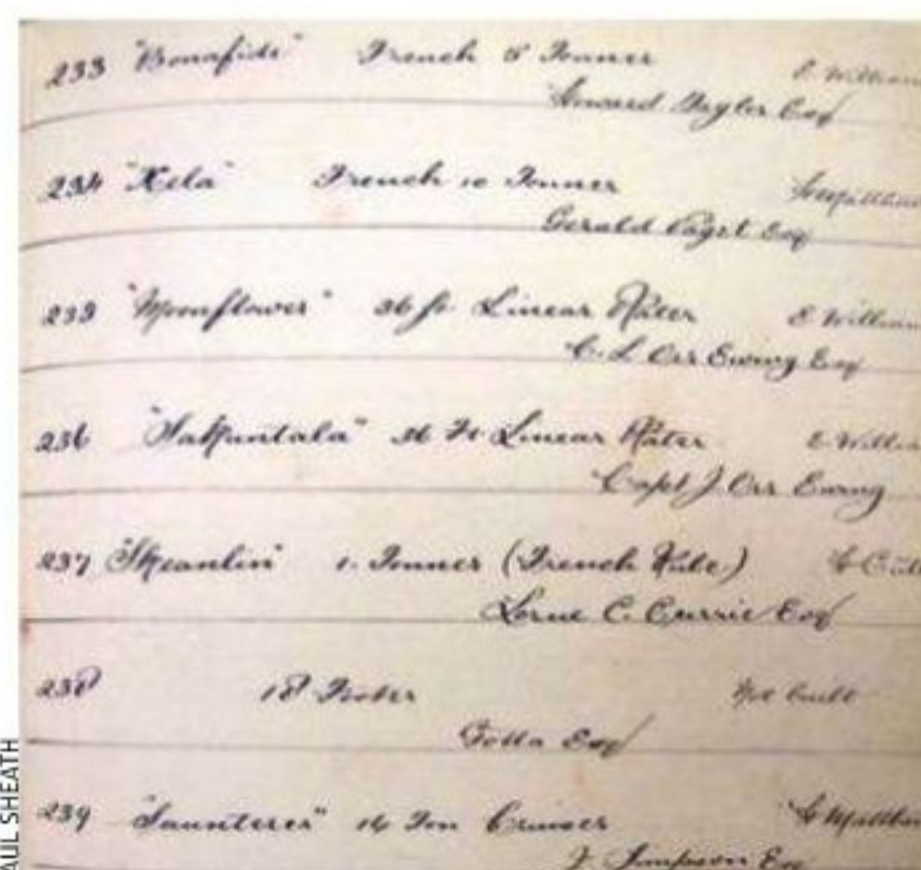 233 "Bonafide" French 5 Tonner E. William
Howard Taylor Esq
234 "Xela" French 10 Tonner
Gerald Paget Esq
235 "Moonflower" 36 ft Linear Rater E William
C. L. Orr Ewing Esq
236 "Sakuntala" 36 Ft Linear Rater E. Willia
Capt J. Orr Ewing
237 "Skeanlin" 1. Tonner (French Rule)
Lorne C. Currie Esq
238 18 Footer Not built
Esq
239 "Saunterer" 16 Ton Cruiser
J. Simpson Esq
AUL SHEATH